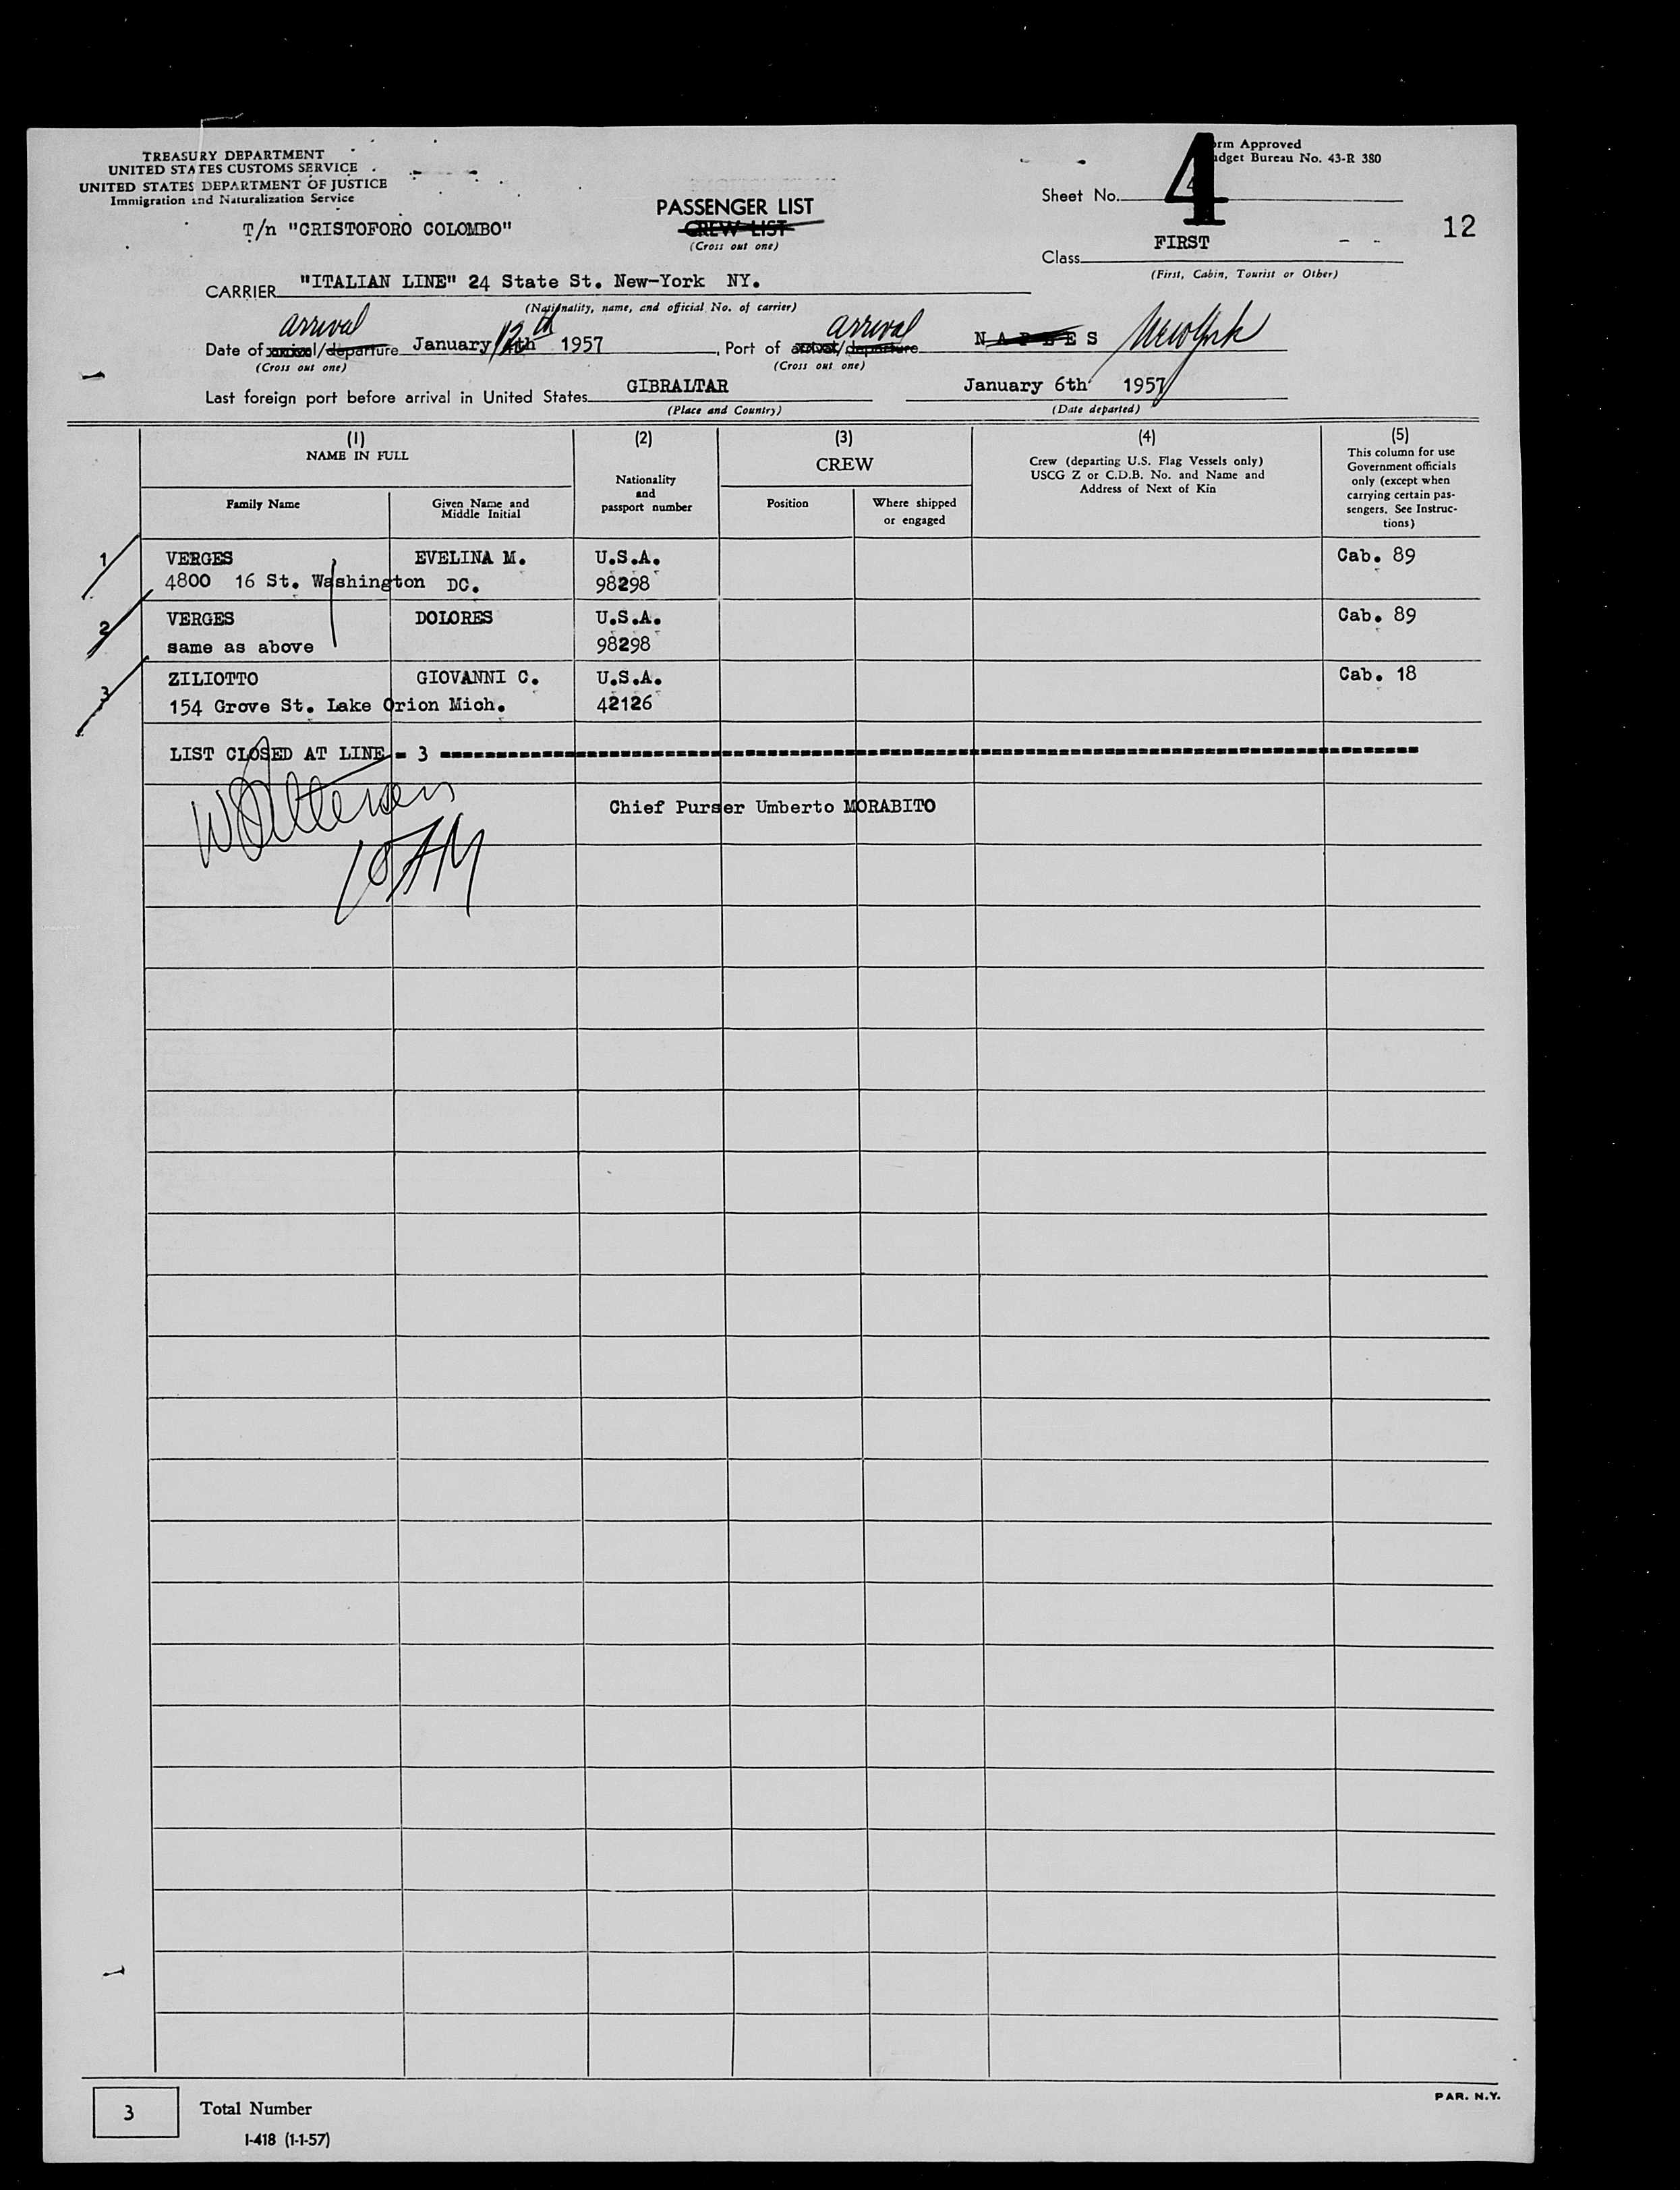 TREASURY DEPARTMENT
UNITED STATES CUSTOMS SERVICE
UNITED STATES DEPARTMENT OF JUSTICE
Immigration and Naturalization Service
T/n "CRISTOFORO COLOMBO"
PASSENGER LIST
CREW LIST
(Cross out one)
Form Approved
Budget Bureau No. 43-R 380
Sheet No. 4
12
Class FIRST
(First, Cabin, Tourist or Other)
CARRIER "ITALIAN LINE" 24 State St. New-York NY.
(Nationality, name, and official No. of carrier)
arrival arrival
Date of arrival/departure January 12th 1957, Port of arrival/departure NAPLES New York
(Cross out one) (Cross out one)
Last foreign port before arrival in United States GIBRALTAR January 6th 1957
(Place and Country) (Date departed)
(1) (2) (3) (4) (5)
NAME IN FULL
Family Name
Given Name and Middle Initial
Nationality and passport number
CREW
Position
Where shipped or engaged
Crew (departing U.S. Flag Vessels only)
USCG Z or C.D.B. No. and Name and
Address of Next of Kin
This column for use
Government officials
only (except when
carrying certain pas-
sengers. See Instruc-
tions)
1 VERGES EVELINA M. U.S.A. Cab. 89
4800 16 St. Washington DC. 98298
2 VERGES DOLORES U.S.A. Cab. 89
same as above 98298
3 ZILIOTTO GIOVANNI C. U.S.A. Cab. 18
154 Grove St. Lake Orion Mich. 42126
LIST CLOSED AT LINE = 3
Chief Purser Umberto MORABITO
3 Total Number
I-418 (1-1-57)
PAR. N.Y.